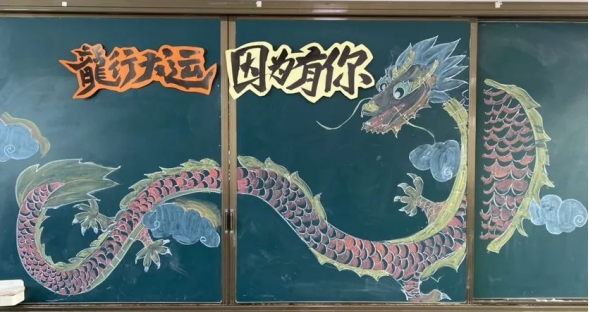 龍行大运 因为有你